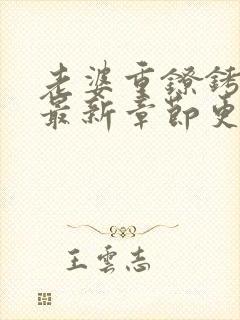 老婆重镣铐
最新章节史
王云志